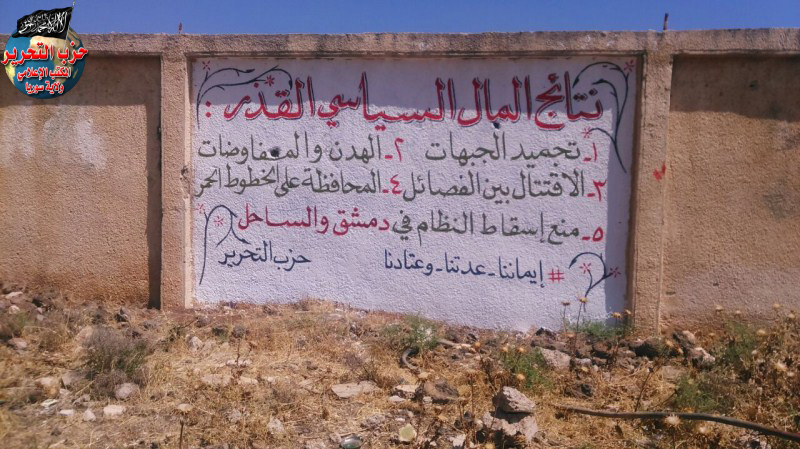 حزب التحرير
المكتب الإعلامي
ولاية سوريا
نتائج المال السياسي القذر :
١- تجميد الجبهات ٢- الهدن والمفاوضات
٣- الاقتتال بين الفصائل ٤- المحافظة على الخطوط الحمر
٥- منع إسقاط النظام في دمشق والساحل
# إيماننا - عدتنا - وعتادنا حزب التحرير